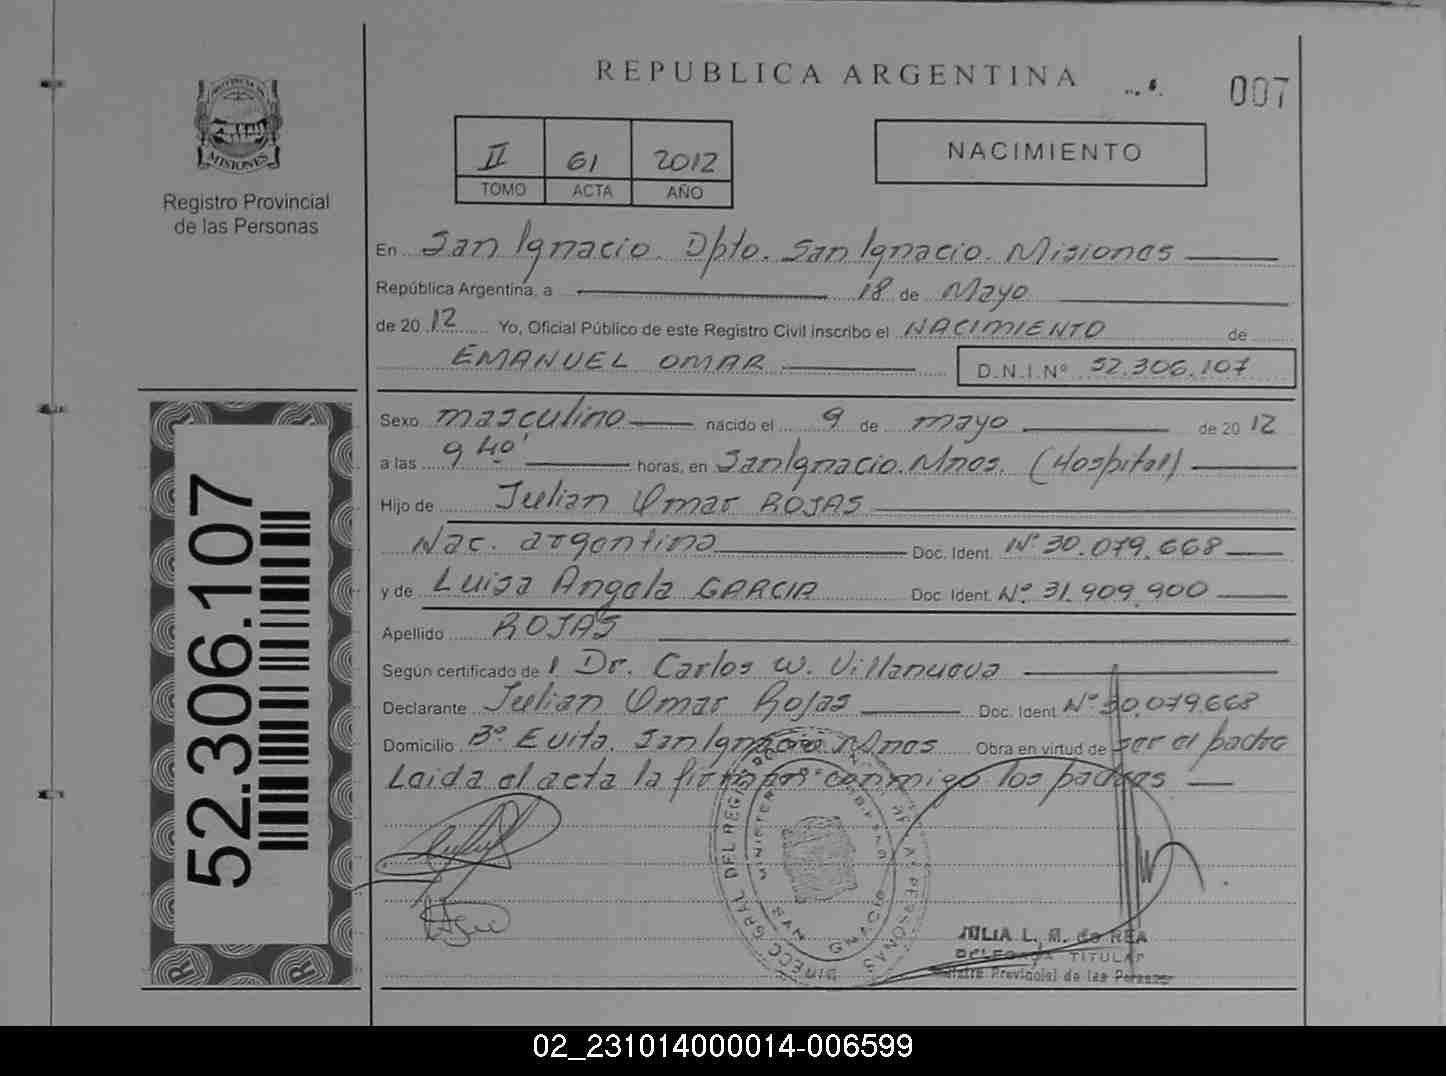 REPUBLICA ARGENTINA
007
PROVINCIA DE
MISIONES
Registro Provincial
de las Personas
II 61 2012
TOMO ACTA AÑO
NACIMIENTO
En San Ignacio. Dpto. San Ignacio. Misiones
República Argentina, a 18 de Mayo
de 2012 Yo, Oficial Público de este Registro Civil inscribo el NACIMIENTO de
EMANUEL OMAR D.N.I.Nº 52.306.107
Sexo masculino nacido el 9 de mayo de 2012
a las 9 40' horas, en San Ignacio. Mnes. (Hospital)
Hijo de Julian Omar ROJAS
Nac. argentina Doc. Ident. Nº 30.079.668
y de Luisa Angela GARCIA Doc. Ident. Nº 31.909.900
Apellido ROJAS
Según certificado de l Dr. Carlos W. Villanueva
Declarante Julian Omar Rojas Doc. Ident Nº 30.079.668
Domicilio Bº Evita. San Ignacio Mnes Obra en virtud de ser el padre
Leida el acta la firman conmigo los padres
52.306.107
DIRECC GRAL DEL REGISTRO PERSONAS
MINISTERIO
SAN IGNACIO
JULIA L. M. de REA
DELEGADA TITULAR
Registro Provincial de las Personas
02_231014000014-006599